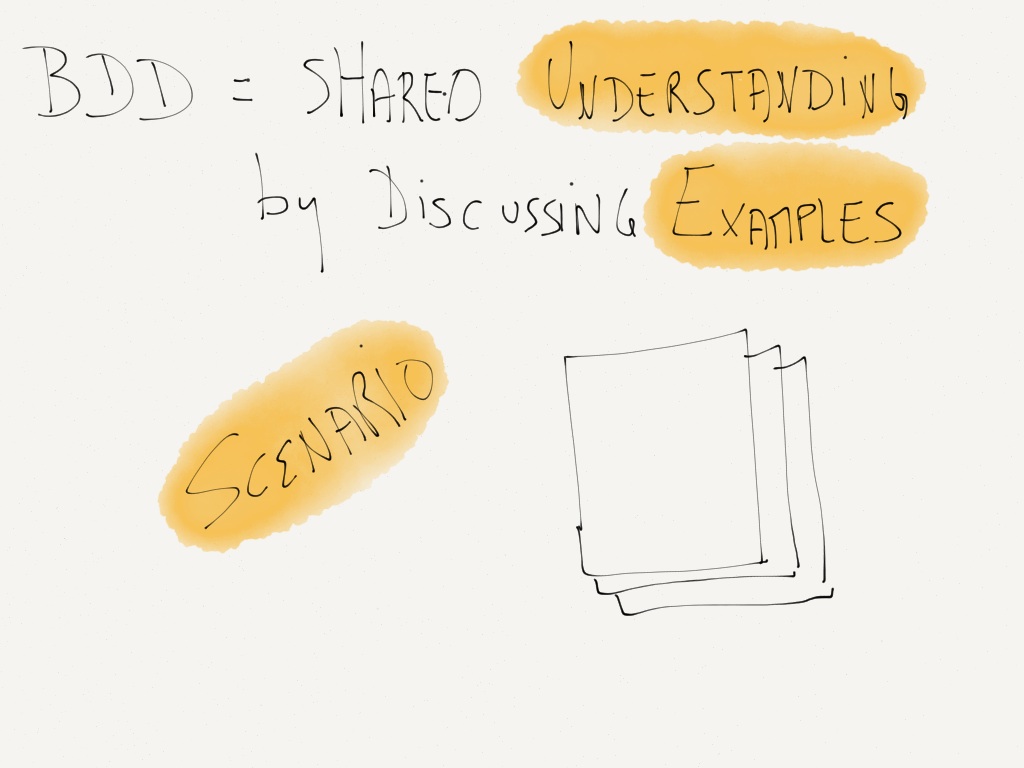 BDD = SHARED UNDERSTANDING
by DiSCUSSING EXAMPLES
SCENARIO